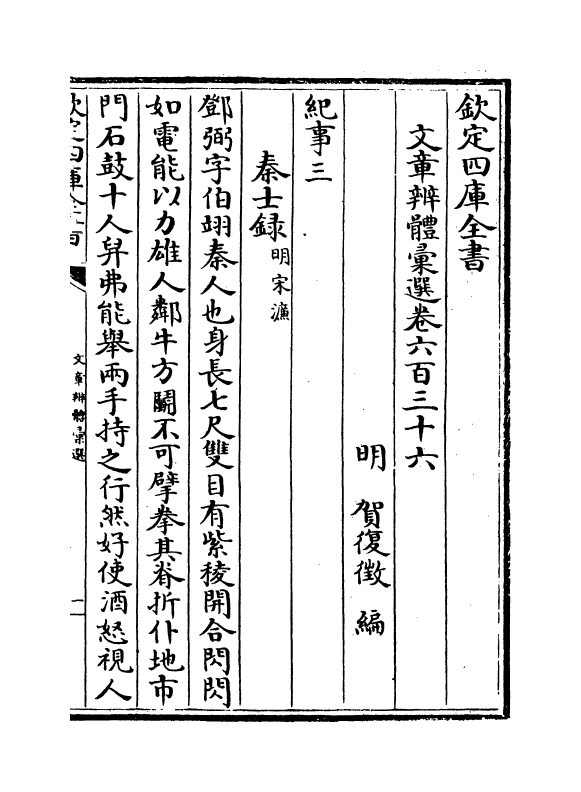 欽定四庫全書
文章辨體彙選卷六百三十六
明 賀復徵 編
紀事三
秦士録 明宋濂
鄧弼字伯翊秦人也身長七尺雙目有紫稜開合閃閃
如電能以力雄人鄰牛方鬬不可擘拳其脊折仆地市
門石鼓十人舁弗能舉兩手持之行然好使酒怒視人
欽定四庫全書
文章辨體彙選